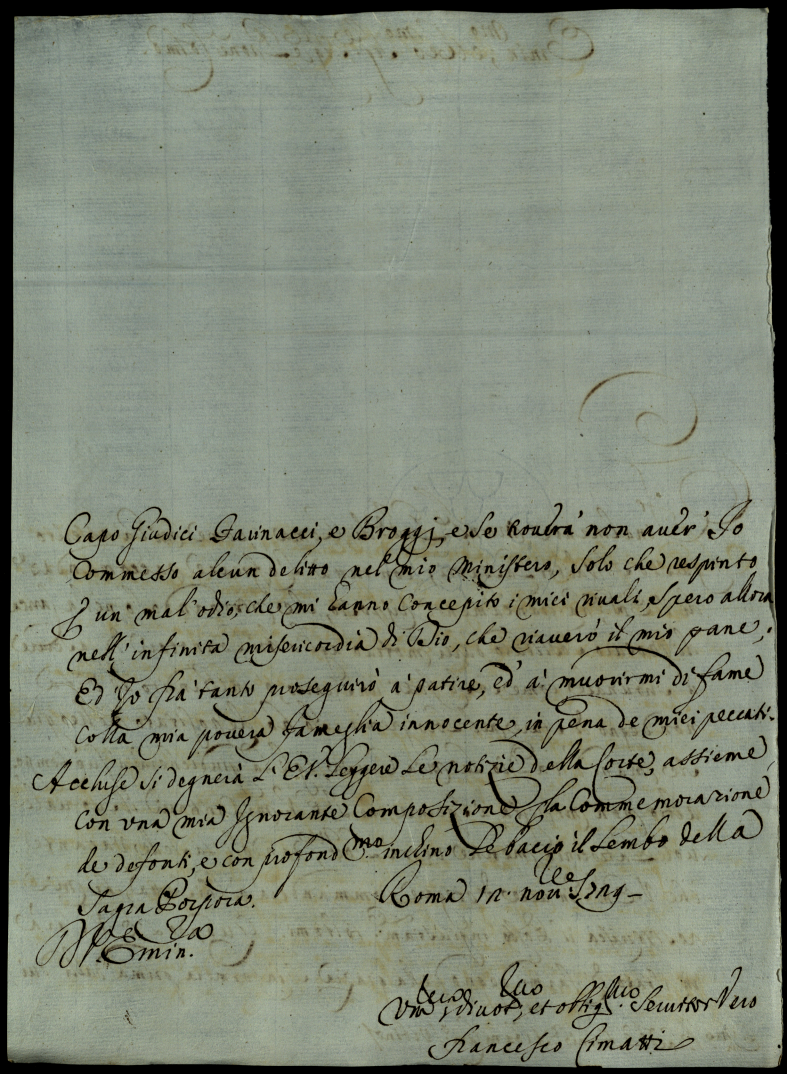 Capo Giudici Farinacci, e Broggi, e se trouerà non auer' Io
Commesso alcun delitto nel mio Ministero, solo che respinto
P un' mal'odio, che mi hanno concepito i miei riuali, spero allora
nell'infinita misericordia di Dio, che riauerò il mio pane,
Ed Io frà tanto proseguirò à patire, ed' à muorirmi di fame
colla mia pouera fameglia innocente, in pena de miei peccati.
Accluse si degnerà L'E.V. leggere le notizie della Corte, assieme
con vna mia Ignorante Composizione p la Commemorazione
de defonti, e con profond.mo inchino Le bacio il Lembo della
Sagra Porpora. Roma 12 nou.re
V. Emin.za
Vm.mo, diuot.mo, et obblig.mo Seruitor Vero
Francesco Cimatti